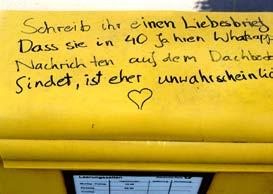 Schreib ihr einen Liebesbrief
Dass sie in 40 Jahren Whatsapp-
Nachrichten auf dem Dachbod
findet, ist eher unwahrscheinlic
Leerungszeiten